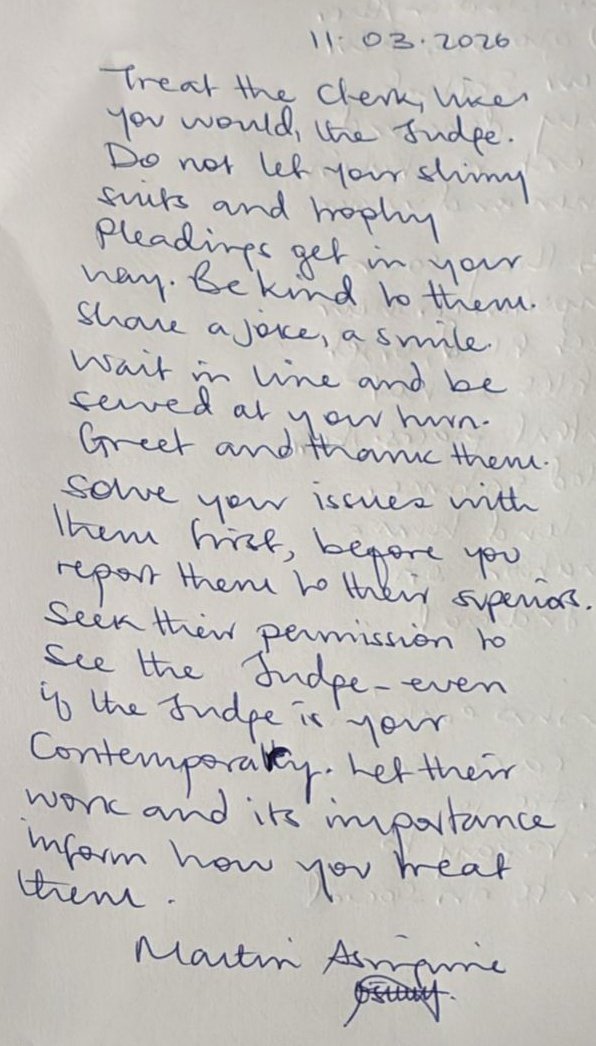 11.03.2026
Treat the Clerk, like
you would, the Judge.
Do not let your shiny
suits and trophy
pleadings get in your
way. Be kind to them.
Share a joke, a smile.
Wait in line and be
served at your turn.
Greet and thank them.
Solve your issues with
them first, before you
report them to their superiors.
Seek their permission to
see the Judge - even
if the Judge is your
Contemporary. Let their
work and its importance
inform how you treat
them.
Martin